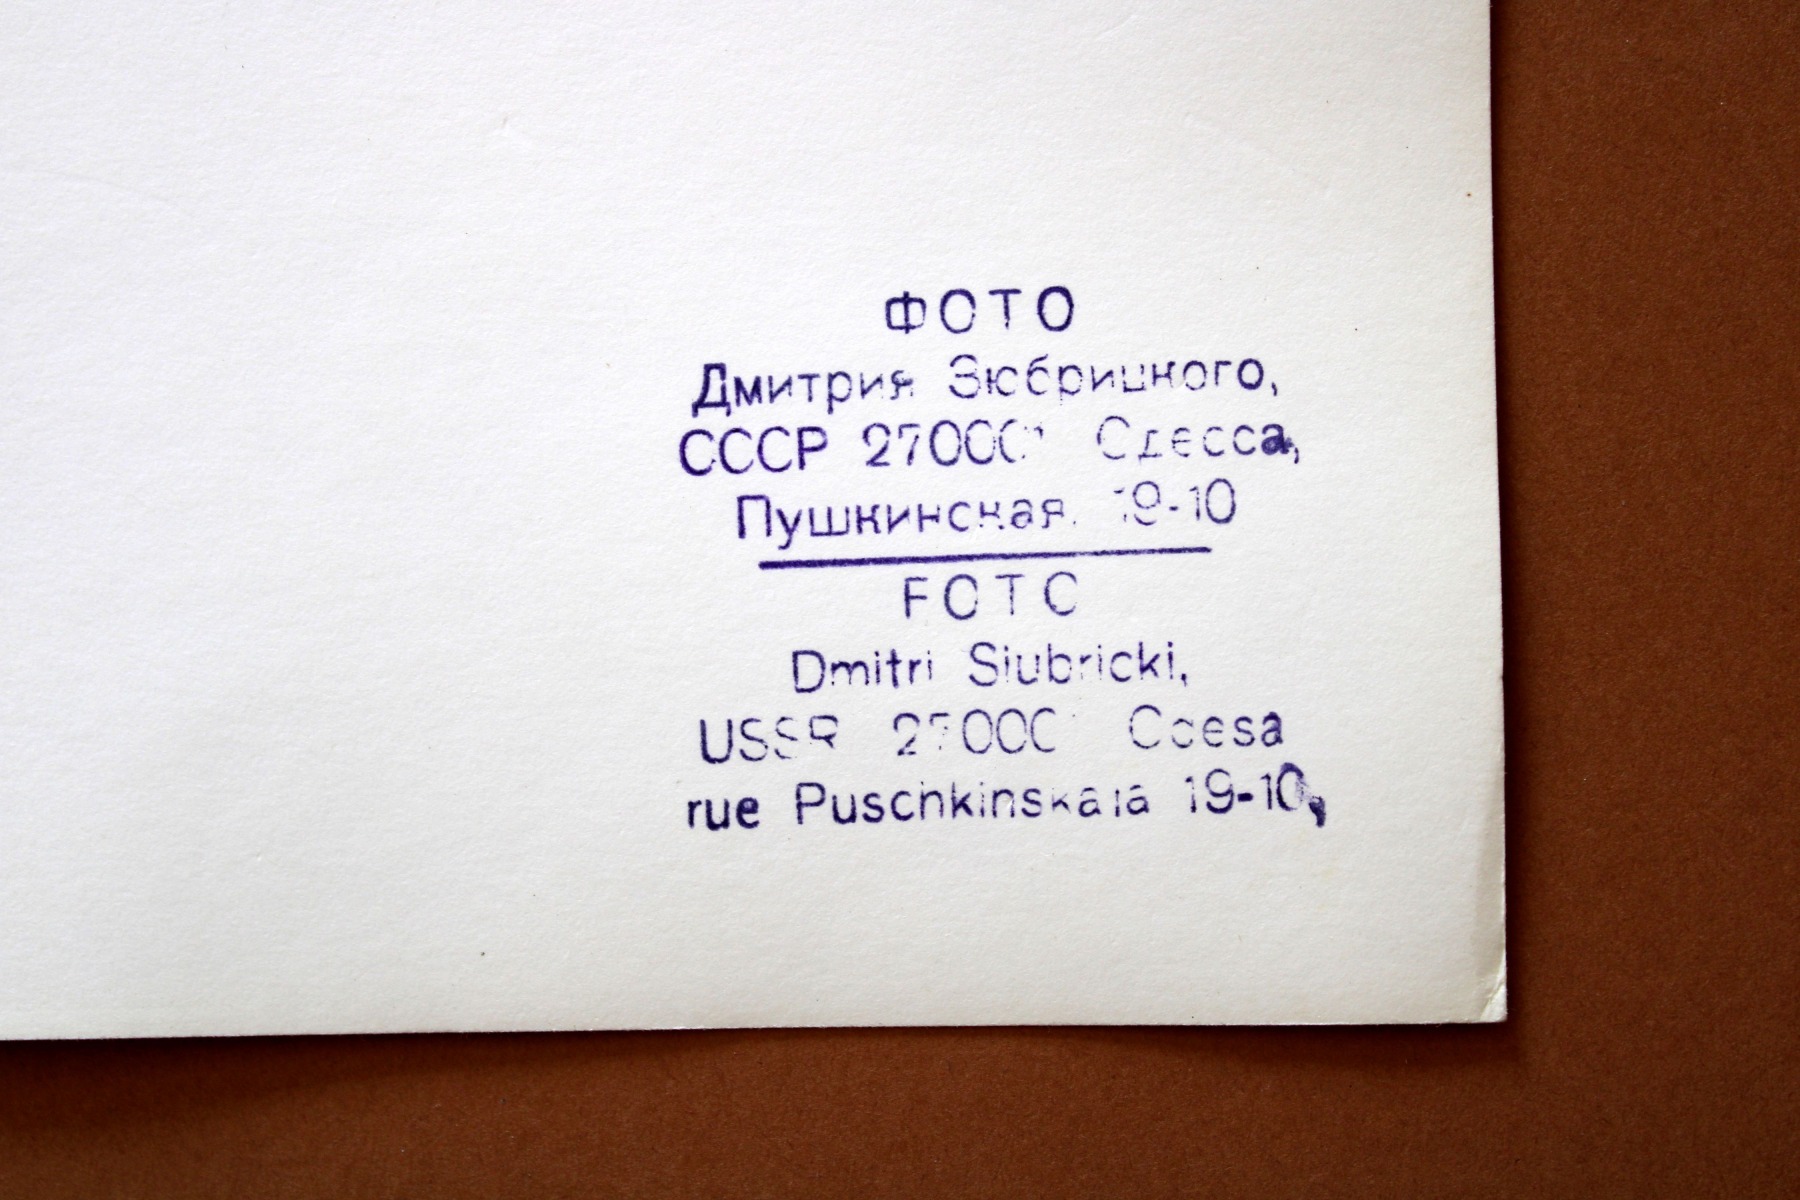 ФОТО
Дмитрия Зюбрицкого,
СССР 270001 Одесса,
Пушкинская, 19-10
FOTO
Dmitri Siubricki,
USSR 270001 Odesa
rue Puschkinskaia 19-10,